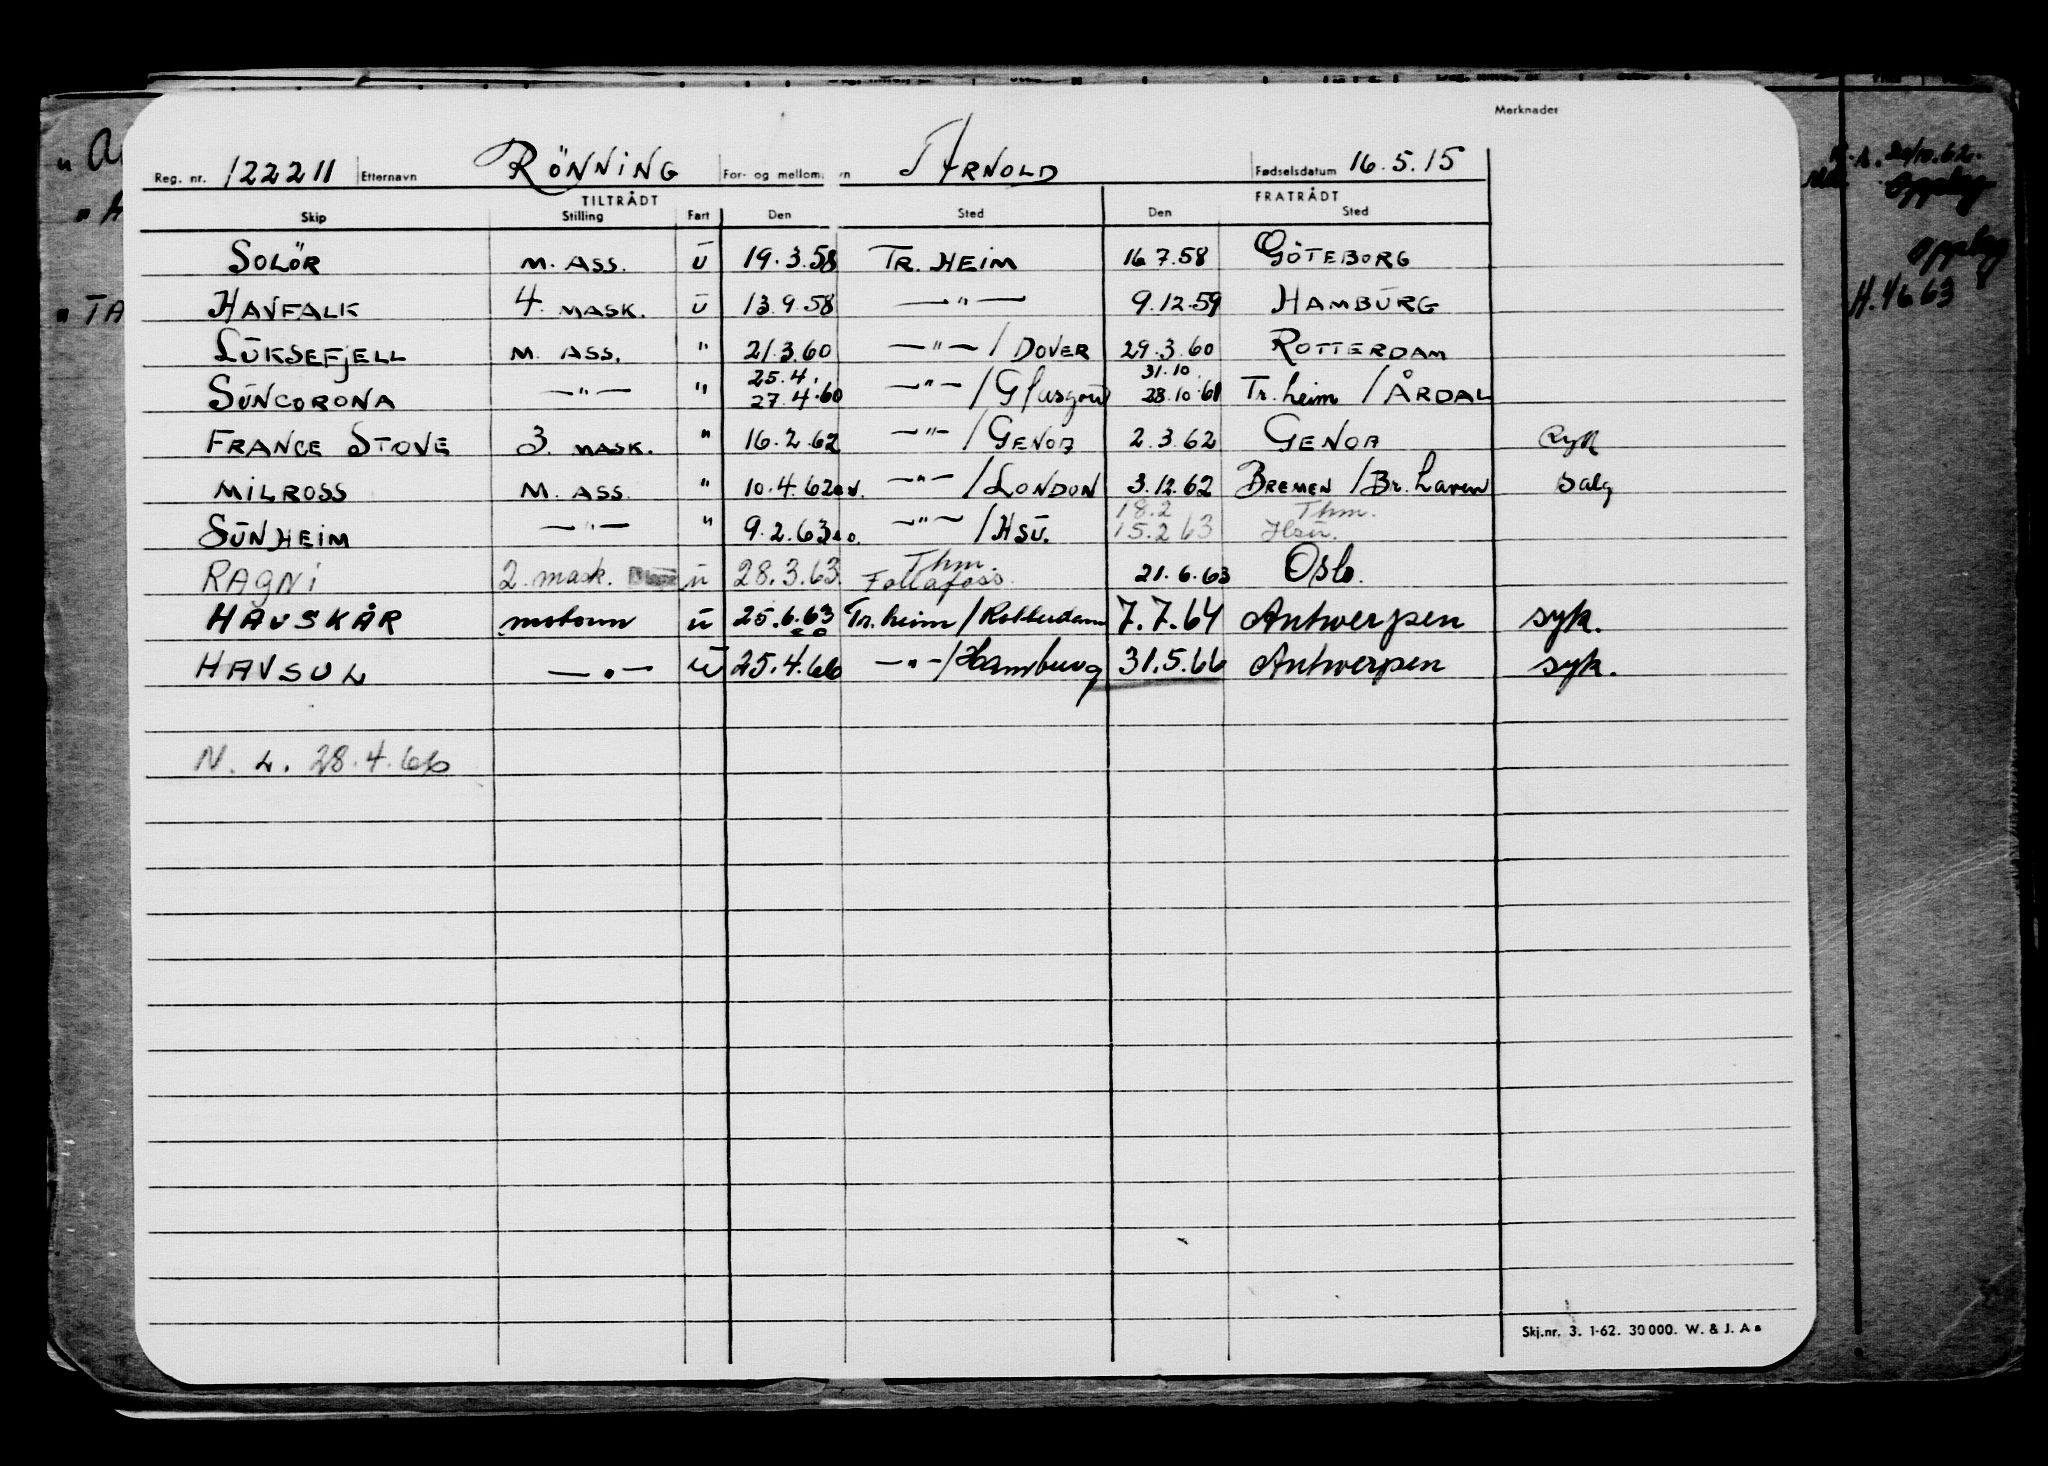 Merknader
Reg. nr. 122211 Etternavn RÖNNING For- og mellomn vn ARNOLD Fødselsdatum 16.5.15
TILTRÅDT FRATRÅDT
Skip Stilling Fart Den Sted Den Sted
SOLÖR M. ASS. U 19.3.58 TR. HEIM 16.7.58 GÖTEBORG
HAVFALK 4. MASK. U 13.9.58 —"— 9.12.59 HAMBURG
LUKSEFJELL M. ASS. " 21.3.60 —"— / DOVER 29.3.60 ROTTERDAM
25.4. 31.10.
SUNCORONA —"— " 27.4.60 —"— / Glasgow 28.10.61 Tr. heim / ÅRDAL
FRANCE STOVE 3. MASK. " 16.2.62 —"— / GENOA 2.3.62 GENOA syk
MILROSS M. ASS. " 10.4.62 —"— / LONDON 3.12.62 BREMEN / Br. haven salg
18.2 Thm.
SUNHEIM —"— " 9.2.63 —"— / HSU. 15.2.63 Hsu.
Thm.
RAGNI 2. mask. u 28.3.63 Follafoss. 21.6.63 Oslo.
HAVSKÅR motorm u 25.6.63 Tr. heim / Rotterdam 7.7.64 Antwerpen syk.
HAVSUL —"— u 25.4.66 —"— / Hamburg 31.5.66 Antwerpen syk.
N. L. 28.4.66
Skj.nr. 3. 1-62. 30 000. W. & J. A
" TA
Opplag
Opplag